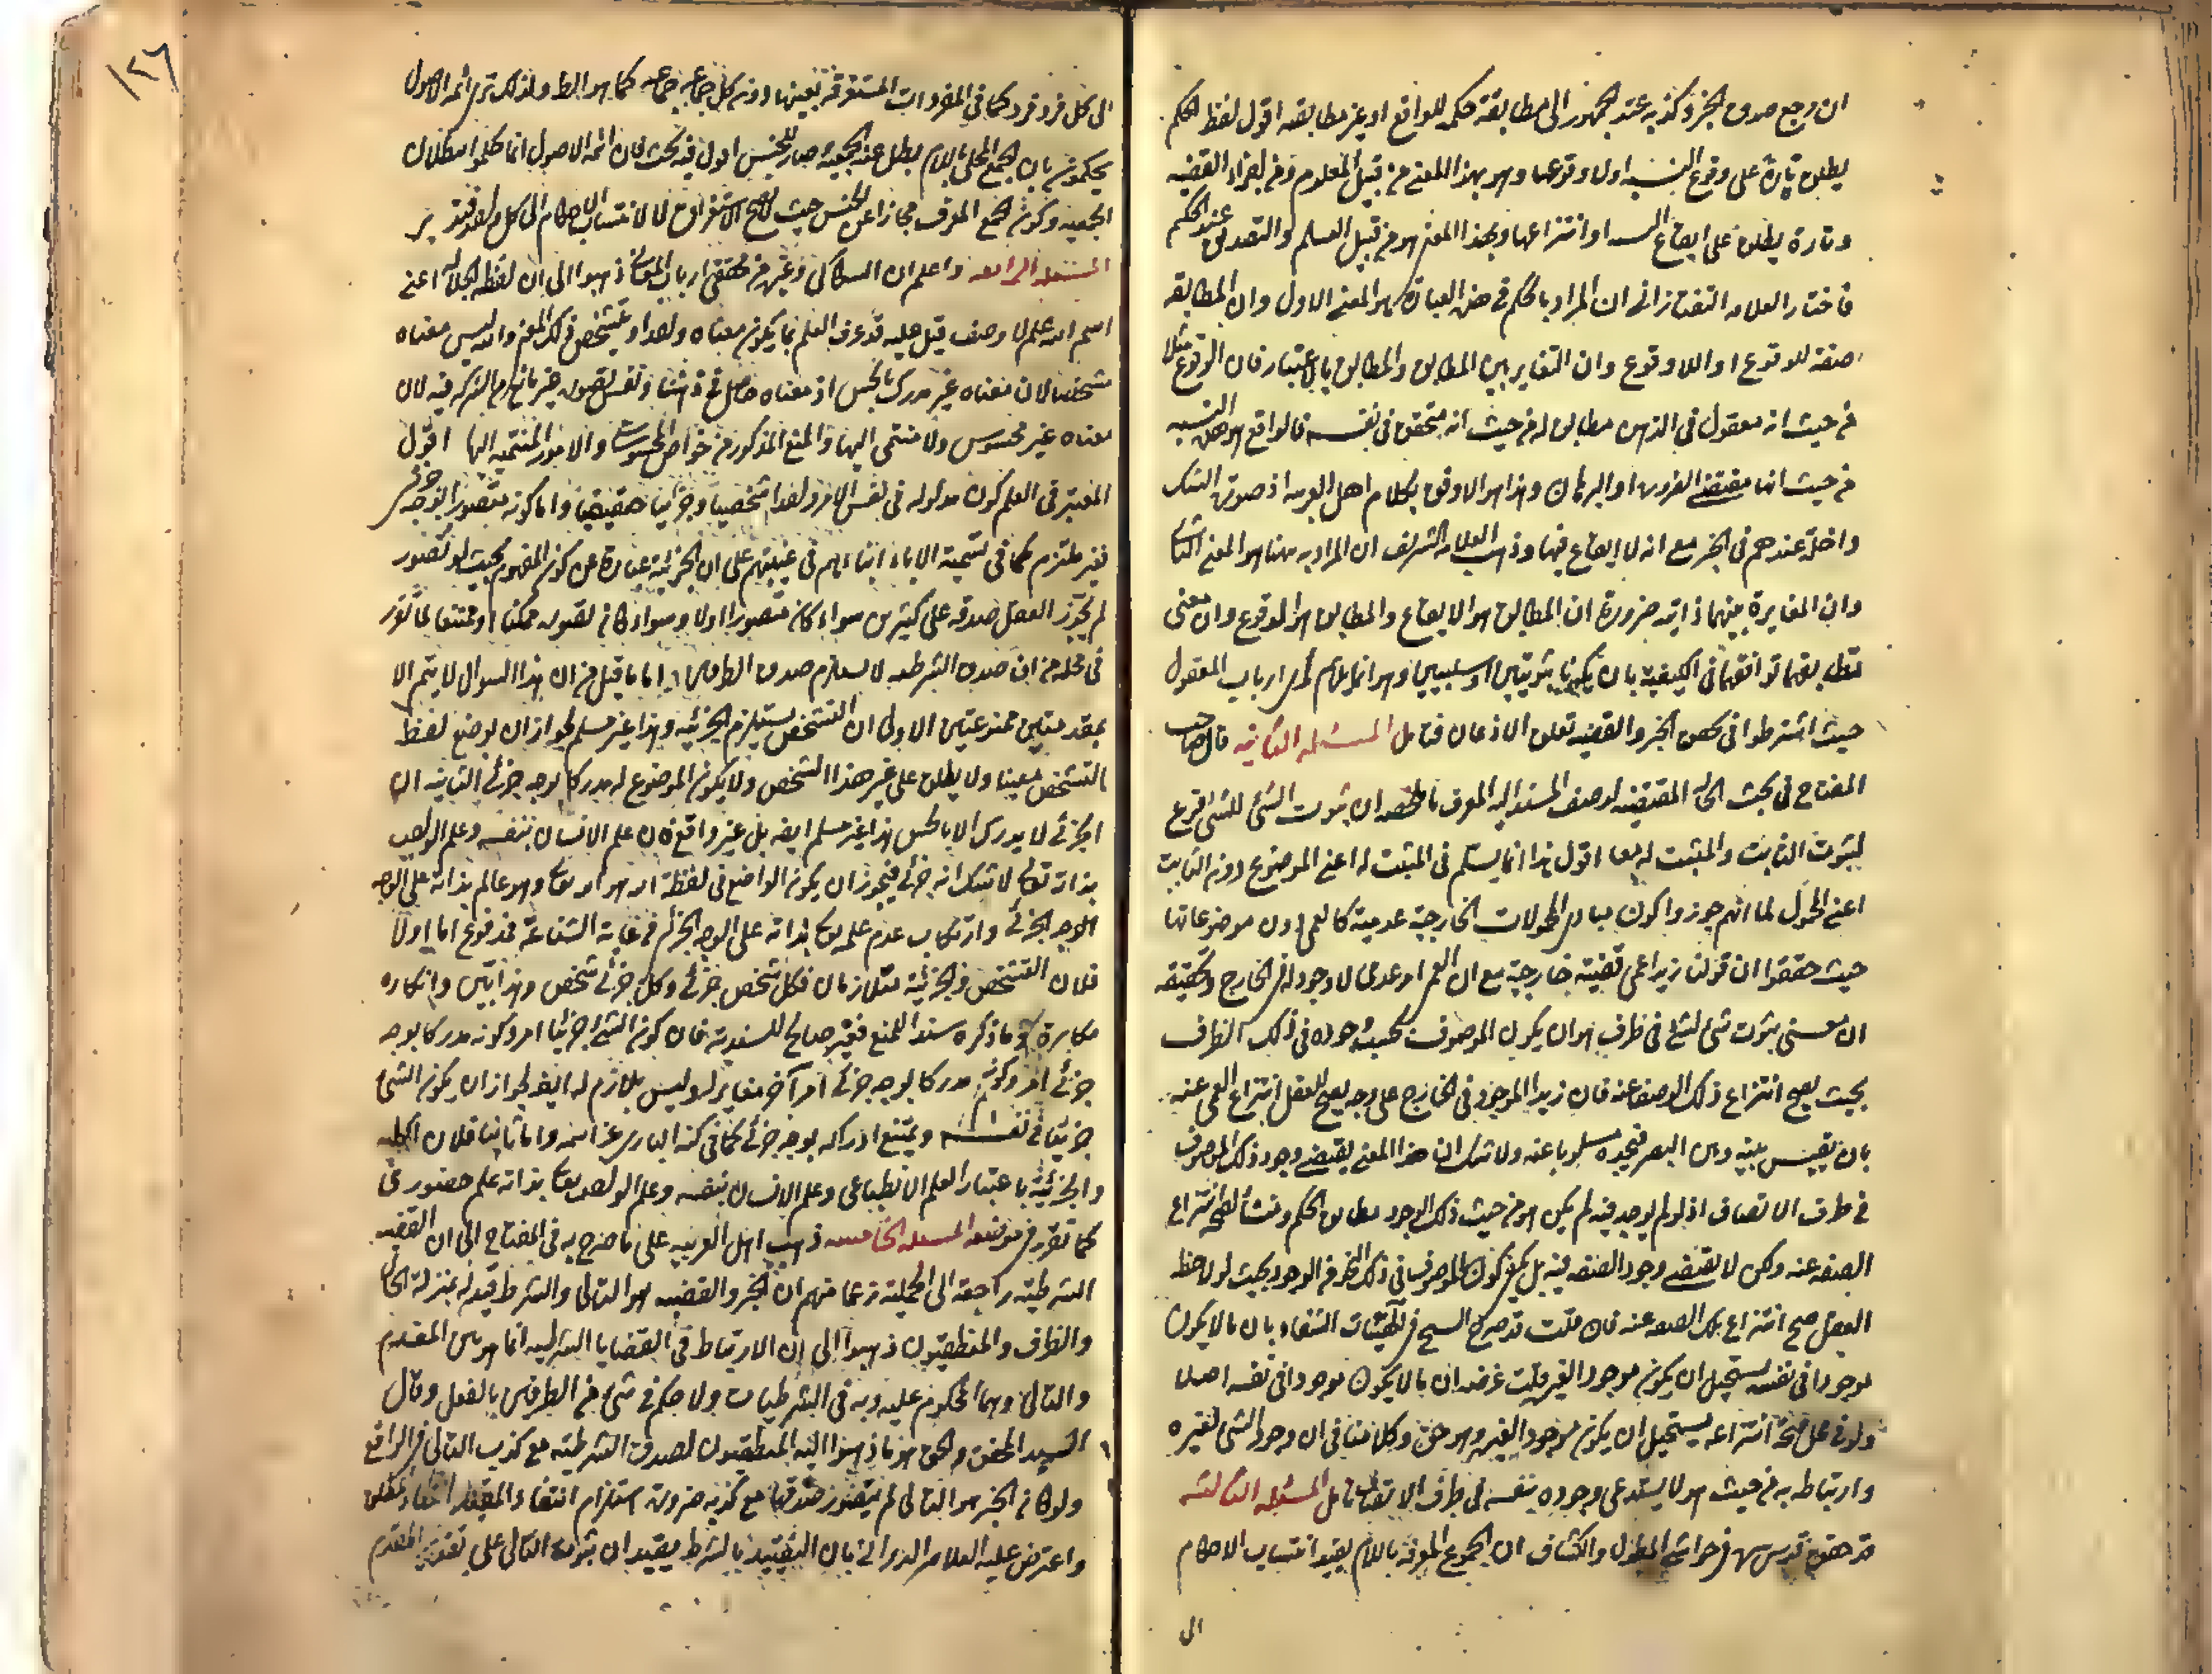 ان مرجع صدق الخبر وكذبه عند الجمهور الى مطابقة حكمه للواقع او عدم مطابقته اقول لفظ الحكم
يطلق تارة على وقوع النسبة او لا وقوعها وهو بهذا المعنى من قبيل المعلوم ومن اجزاء القضيه
وتارة يطلق على ايقاع النسبة او انتزاعها وبهذا المعنى هو من قبيل العلم والتصديق عند الحكم
فاختار العلامه التفتازاني ان المراد بالحكم في هذه العبارة هو المعنى الاول وان المطابقه
صفة للوقوع او اللاوقوع وان التغاير بين المطابق والمطابق بالاعتبار فان الوقوع مثلا
من حيث انه معقول في الذهن مطابق له من حيث انه متحقق في نفسه فالواقع هو هذه النسبه
من حيث انها مقتضى الضرورة او البرهان وهذا هو الاوفق بكلام اهل العربيه اذ صورة الشك
داخلة عندهم في الخبر مع انه لا ايقاع فيها وذهب العلامه الشريف ان المراد به ههنا هو المعنى الثانى
وان المغايرة بينهما ذاتيه ضرورة ان المطابق هو الايقاع والمطابق هو الوقوع وان معنى
تطابقهما توافقهما في الكيفية بان يكونا ثبوتيين او سلبيين وهو انما يلائم راى ارباب المعقول
حيث اشترطوا في تحقق الخبر والقضيه تعلق الاذعان فتامل المسئله الثانيه قال صاحب
المفتاح في بحث الحاله المقتضيه لوصف المسند اليه المعرف ما ملخصه ان ثبوت الشئ للشئ فرع
لثبوت الثابت والمثبت له معا اقول هذا انما يسلم في المثبت له اعنى الموضوع دون الثابت
اعنى المحمول لما انهم جوزوا كون مبادى المحمولات الخارجية عدمية كالعمى دون موضوعاتها
حيث حققوا ان قولنا زيد اعمى قضية خارجية مع ان العمى امر عدمى لا وجود له في الخارج وتحقيقه
ان معنى ثبوت شئ لشئ في ظرف هو ان يكون الموصوف بحسب وجوده في ذلك الظرف
بحيث يصح انتزاع ذلك الوصف عنه فان زيدا الموجود في الخارج على وجه يصح للعقل انتزاع العمى عنه
بان يقيس بينه وبين البصر فيجده مسلوبا عنه ولا شك ان هذا المعنى يقتضى وجود ذلك الموصوف
في ظرف الاتصاف اذ لو لم يوجد فيه لم يكن هو من حيث ذلك الوجود مطابق الحكم ومنشأ لصحة انتزاع
الصفه عنه ولكن لا يقتضى وجود الصفه فيه بل يكفى كون الموصوف في ذلك الظرف الوجود بحيث لو لاحظه
العقل صح انتزاع تلك الصفه عنه فان قلت قد صرح الشيخ في الهيات الشفاء بان ما لا يكون
موجودا في نفسه يستحيل ان يكون موجودا لغيره قلت غرضه ان ما لا يكون موجودا في نفسه اصلا
ولو في محل صحة انتزاعه يستحيل ان يكون موجودا لغيره وهو حق وكلامنا في ان وجود الشئ لغيره
وارتباطه به من حيث هو لا يستدعى وجوده بنفسه في ظرف الاتصاف تامل المسئله الثالثه
قد حقق قدس سره في حواشى المطول والكشاف ان الجموع المعرفه باللام يفيد انتساب الاحكام
الى
١٢٦
الى كل فرد فرد كما في المفردات المستغرقة بعينها دون كل جماعه جماعه كما هو الظ ولذلك ترى ائمه الاصول
يحكمون بان الجمع المحلى باللام بطل عنه الجمعية وصار للجنس اقول فيه بحث فان ائمه الاصول انما حكموا ببطلان
الجمعيه وكون الجمع المعرف مجازا عن الجنس حيث لا يصح الاستغراق لا لانتساب الاحكام الى كل واحد فتدبر
المسئله الرابعه واعلم ان السكاكى وغيره من محققى ارباب المعانى ذهبوا الى ان لفظه الجلاله اعنى
اسم الله علم لا وصف قيل عليه قد عرف العلم بما يكون معناه واحدا وتشخص ذلك المعنى والله ليس معناه
مشخصا لان معناه غير مدرك بالحس اذ معناه حاصل في ذهننا ونفس تصوره غير مانع من الشركه فيه لان
معناه غير محسوس ولا منتمى اليها والمنع المذكور من خواص المحسوسات والامور المنتميه اليها اقول
المعتبر في العلم كون مدلوله في نفس الامر واحدا شخصيا وجزئيا حقيقيا واما كونه متصورا بوجه جزئى
فغير ملتزم كما في تسمية الاباء ابناءهم في غيبتهم على ان الجزئية عبارة عن كون المفهوم بحيث لو تصور
لم يجوز العقل صدقه على كثيرين سواء كان متصورا اولا وسواء كان تصوره ممكنا او ممتنعا لما تقرر
في محله من ان صدق الشرطيه لا يستلزم صدق الطرفين واما ما قيل من ان هذا السوال لا يتم الا
بمقدمتين ممنوعتين الاولى ان التشخص يستلزم الجزئيه وهذا غير مسلم لجواز ان يوضع لفظ
التشخص معينا ولا يطلق على غير هذا الشخص ولا يكون الموضوع له مدركا بوجه جزئى الثانيه ان
الجزئى لا يدرك الا بالحس هذا غير مسلم ايضا بل غير واقع فان علم الانسان بنفسه وعلم الواجب
بذاته تعالى لا شك انه جزئى فيجوز ان يكون الواضع في لفظة الله هو الله تعالى وهو عالم بذاته على الوجه
الوجه الجزئى وارتكاب عدم علمه تعالى بذاته على الوجه الجزئى في غاية الشناعة فمدفوع اما اولا
فلان التشخص والجزئية متلازمان فكل شخص جزئى وكل جزئى شخص وهذا بين وانكاره
مكابرة وما ذكره سندا للمنع فغير صالح للسندية فان كون الشئ جزئيا امر وكونه مدركا بوجه
جزئى امر وكونه مدركا بوجه جزئى امر آخر مغاير له وليس بلازم له ايضا لجواز ان يكون الشئ
جزئيا في نفسه ويمتنع ادراكه بوجه جزئى كما في كنه البارى عز اسمه واما ثانيا فلان الكليه
والجزئيه باعتبار العلم الانطباعى وعلم الانسان بنفسه وعلم الواجب تعالى بذاته علم حضورى
كما تقرر في موضعه المسئله الخامسه ذهب اهل العربيه على ما صرح به في المفتاح الى ان القضيه
الشرطيه راجعة الى الحملية زعما منهم ان الخبر والقضيه هو التالى والشرط قيد له بمنزلة الحال
والظرف والمنطقيون ذهبوا الى ان الارتباط في القضايا الشرطيه انما هو بين المقدم
والتالى وهما المحكوم عليه وبه في الشرطيات ولا حكم في شئ من الطرفين بالفعل وقال
السيد المحقق والحق هو ما ذهبوا اليه المنطقيون لصدق الشرطيه مع كذب التالى في الواقع
ولو كان الخبر هو التالى لم يتصور صدقها مع كذبه ضرورة استلزام انتفاء المطلق انتفاء المقيد
واعترض عليه العلامه الدوانى بان التقييد بالشرط يفيد ان ثبوت التالى على تقدير المقدم